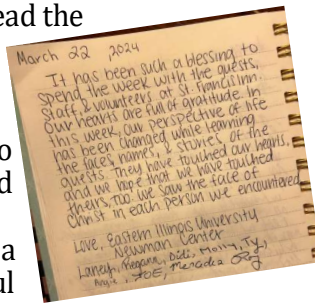 ead the
o
d
a
ul
March 22, 2024
It has been such a blessing to
spend the week with the guests,
staff, & volunteers at St. Francis Inn.
Our hearts are full of gratitude. In
this week, our perspective of life
has been changed while learning
the faces, names, & stories of the
guests. They have touched our hearts,
and we hope that we have touched
theirs, too. We saw the face of
Christ in each person we encountered.
Love, Eastern Illinois University
Newman Center
Laney, Regann, Didi, Molly, Ty,
Angie, ZOE, Mercedes, Roy